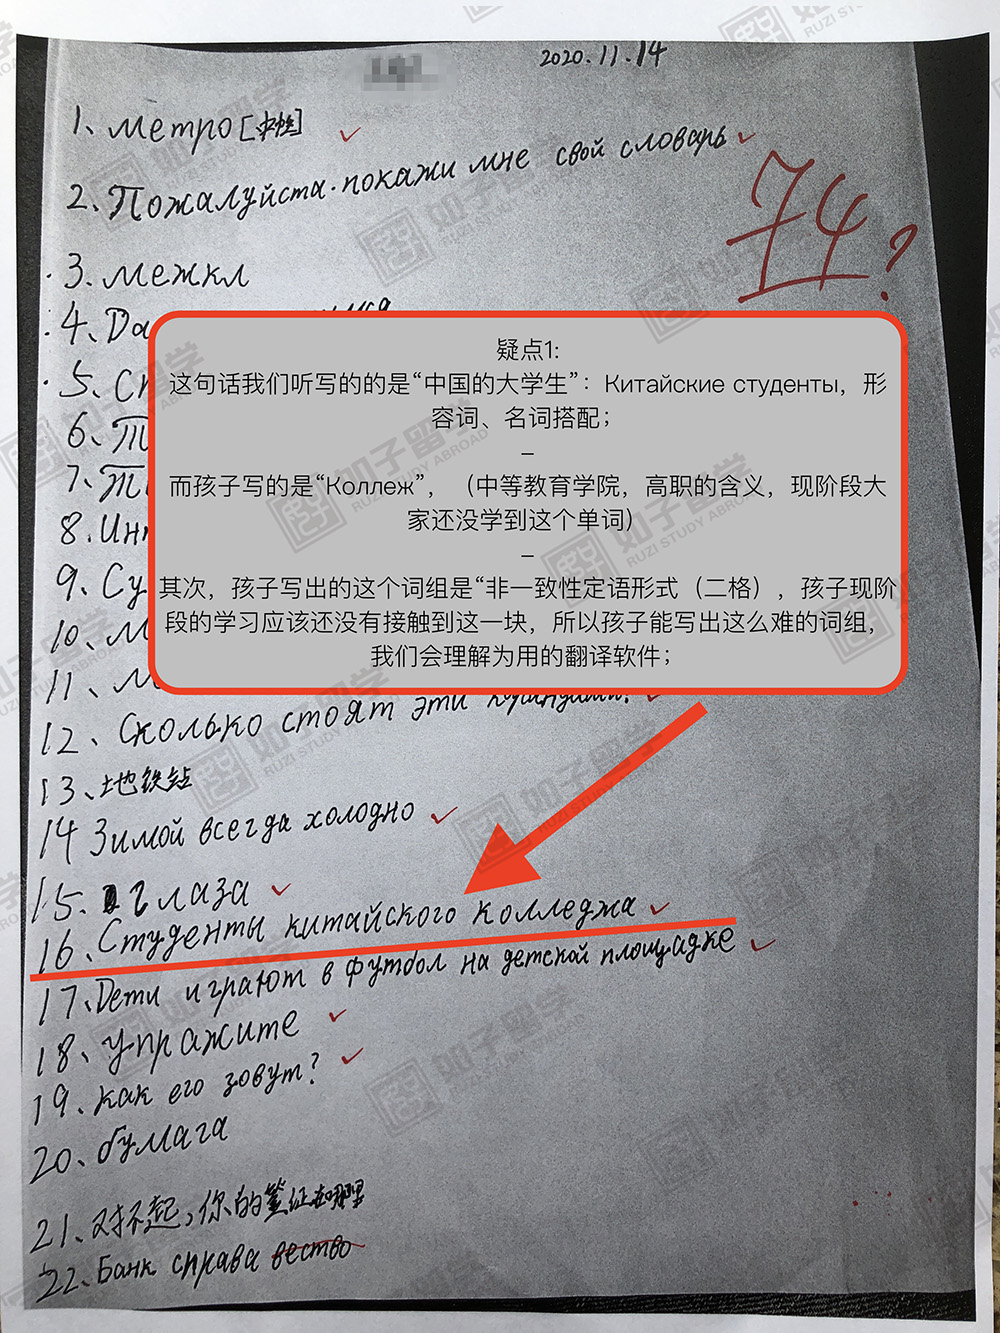 2020.11.14
1、метро[中性]
2、Пожалуйста.покажи мне свой словарь
74?
3.межкл
4、Да
疑点1:
这句话我们听写的的是“中国的大学生”：Китайские студенты，形
容词、名词搭配；
–
而孩子写的是“Коллеж”，（中等教育学院，高职的含义，现阶段大
家还没学到这个单词）
–
其次，孩子写出的这个词组是“非一致性定语形式（二格），孩子现阶
段的学习应该还没有接触到这一块，所以孩子能写出这么难的词组，
我们会理解为用的翻译软件；
5、Ст
6、
7、
8.Инт
9、Су
10、М
11、М
12、Сколько стоят эти
13、地铁站
14 Зимой всегда холодно
15. глаза
16、Студенты китайского колледжа
17、Дети играют в футбол на детской площадке
18、упражите
19、как его зовут?
20、бумага
21、对不起,你的签证在哪里
22、Банк справа вество
如子留学
RUZI STUDY ABROAD